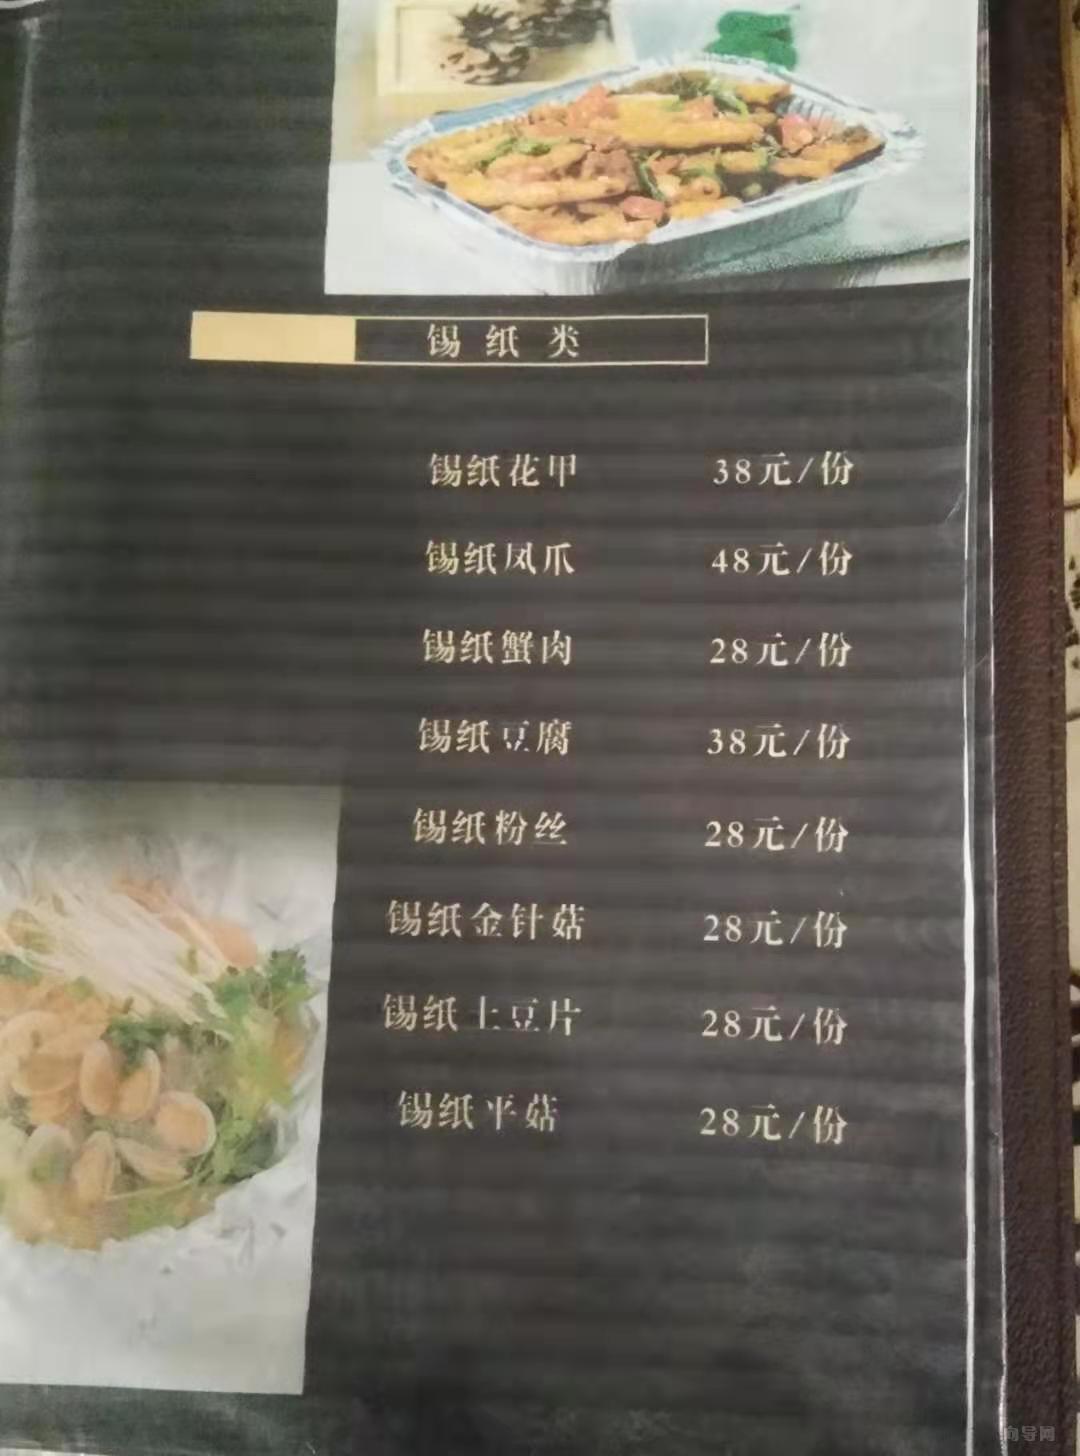 锡纸类
锡纸花甲 38元/份
锡纸凤爪 48元/份
锡纸蟹肉 28元/份
锡纸豆腐 38元/份
锡纸粉丝 28元/份
锡纸金针菇 28元/份
锡纸土豆片 28元/份
锡纸平菇 28元/份
向导网